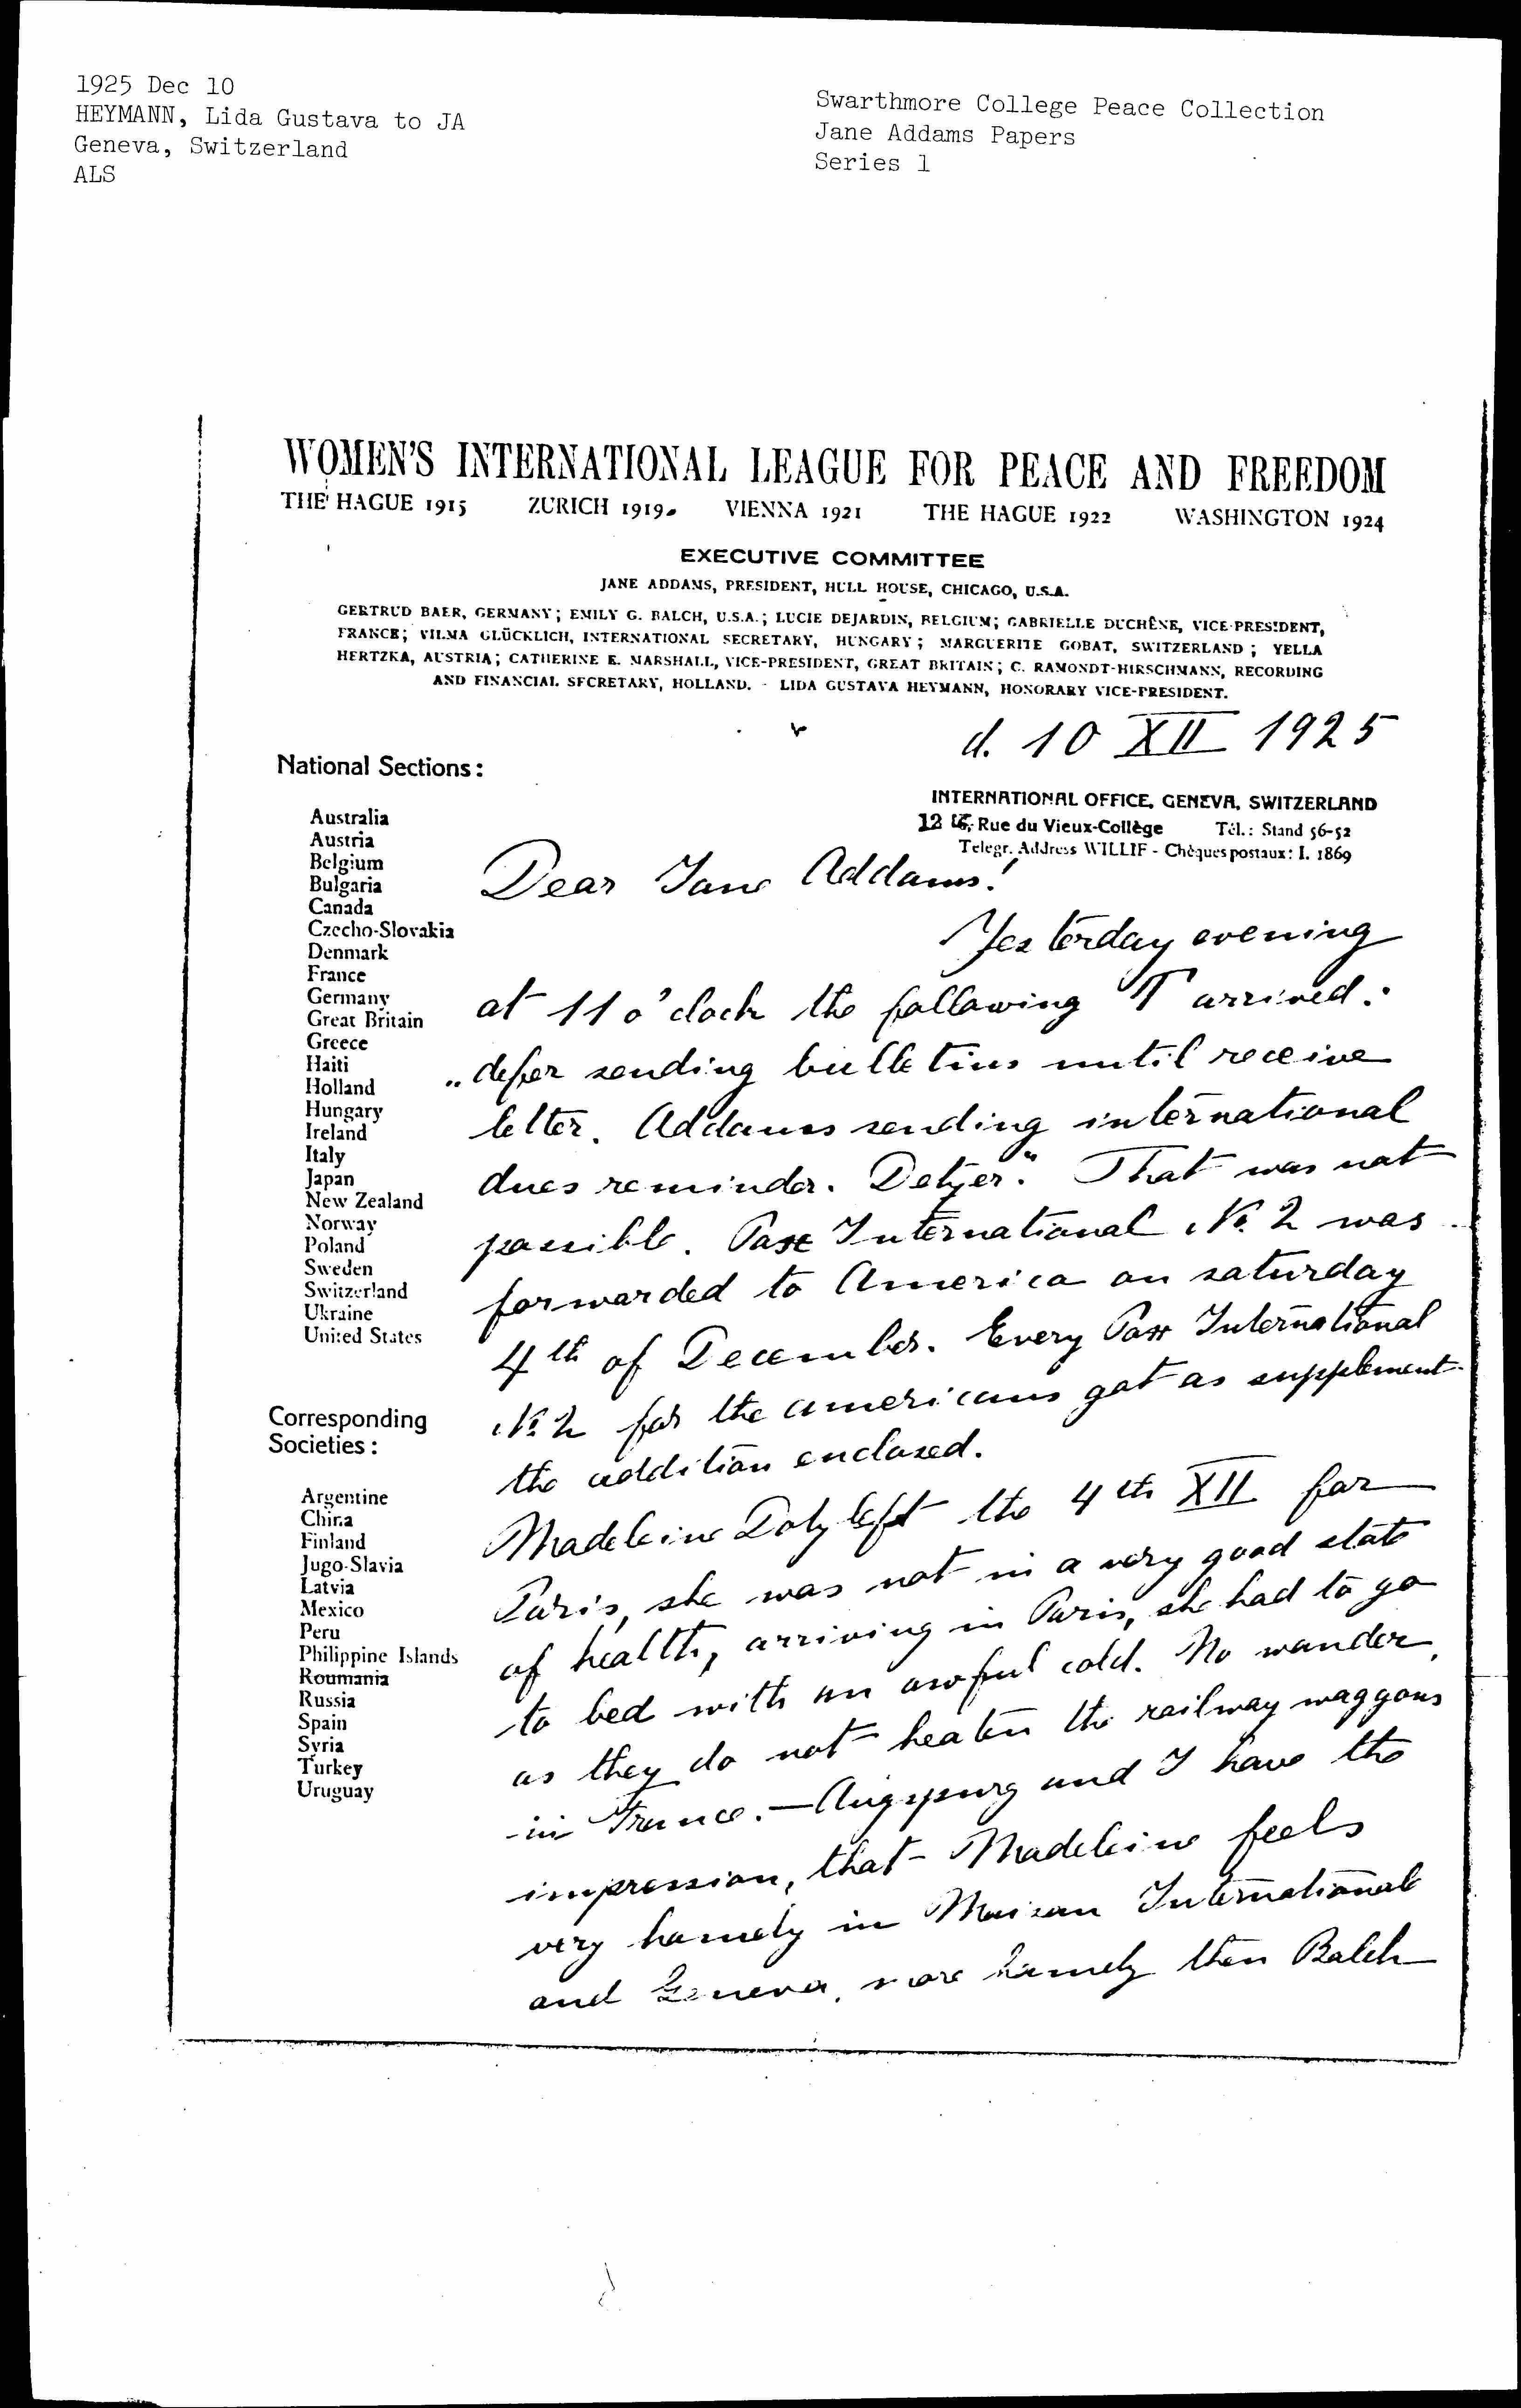 1925 Dec 10
HEYMANN, Lida Gustava to JA
Geneva, Switzerland
ALS
Swarthmore College Peace Collection
Jane Addams Papers
Series 1
WOMEN'S INTERNATIONAL LEAGUE FOR PEACE AND FREEDOM
THE HAGUE 1915 ZURICH 1919 VIENNA 1921 THE HAGUE 1922 WASHINGTON 1924
EXECUTIVE COMMITTEE
JANE ADDAMS, PRESIDENT, HULL HOUSE, CHICAGO, U.S.A.
GERTRUD BAER, GERMANY; EMILY G. BALCH, U.S.A.; LUCIE DEJARDIN, BELGIUM; GABRIELLE DUCHÊNE, VICE-PRESIDENT,
FRANCE; VILMA GLÜCKLICH, INTERNATIONAL SECRETARY, HUNGARY; MARGUERITE GOBAT, SWITZERLAND; YELLA
HERTZKA, AUSTRIA; CATHERINE E. MARSHALL, VICE-PRESIDENT, GREAT BRITAIN; C. RAMONDT-HIRSCHMANN, RECORDING
AND FINANCIAL SECRETARY, HOLLAND. - LIDA GUSTAVA HEYMANN, HONORARY VICE-PRESIDENT.
d. 10 XII 1925
INTERNATIONAL OFFICE, GENEVA, SWITZERLAND
12 Rue du Vieux-Collège Tél.: Stand 56-52
Telegr. Address WILLIF - Chèques postaux: I. 1869
National Sections:
Australia
Austria
Belgium
Bulgaria
Canada
Czecho-Slovakia
Denmark
France
Germany
Great Britain
Greece
Haiti
Holland
Hungary
Ireland
Italy
Japan
New Zealand
Norway
Poland
Sweden
Switzerland
Ukraine
United States
Corresponding
Societies:
Argentine
China
Finland
Jugo-Slavia
Latvia
Mexico
Peru
Philippine Islands
Roumania
Russia
Spain
Syria
Turkey
Uruguay
Dear Jane Addams!
Yesterday evening
at 11 o'clock the following T arrived:
„defer sending bulletins until receive
letter. Addams sending international
dues reminder. Detzer." That was not
possible. Pax International No. 2 was
forwarded to America on saturday
4th of December. Every Pax International
No. 2 for the americans got as supplement
the addition enclosed.
Madeleine Doty left the 4th XII for
Paris, she was not in a very good state
of health, arriving in Paris, she had to go
to bed with an awful cold. No wonder,
as they do not heaten the railway waggons
in France. — Augspurg and I have the
impression, that Madeleine feels
very homely in Maison Internationale
and Geneva, more homely then Balch